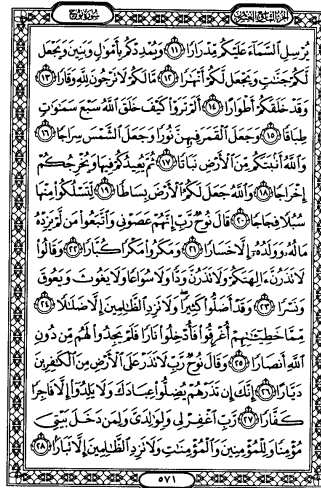 الجزء التاسع والعشرون
سورة نوح
يُرْسِلِ ٱلسَّمَآءَ عَلَيْكُم مِّدْرَارًا ١١ وَيُمْدِدْكُم بِأَمْوَٰلٍ وَبَنِينَ وَيَجْعَل
لَّكُمْ جَنَّٰتٍ وَيَجْعَل لَّكُمْ أَنْهَٰرًا ١٢ مَّا لَكُمْ لَا تَرْجُونَ لِلَّهِ وَقَارًا ١٣
وَقَدْ خَلَقَكُمْ أَطْوَارًا ١٤ أَلَمْ تَرَوْا۟ كَيْفَ خَلَقَ ٱللَّهُ سَبْعَ سَمَٰوَٰتٍ
طِبَاقًا ١٥ وَجَعَلَ ٱلْقَمَرَ فِيهِنَّ نُورًا وَجَعَلَ ٱلشَّمْسَ سِرَاجًا ١٦
وَٱللَّهُ أَنۢبَتَكُم مِّنَ ٱلْأَرْضِ نَبَاتًا ١٧ ثُمَّ يُعِيدُكُمْ فِيهَا وَيُخْرِجُكُمْ
إِخْرَاجًا ١٨ وَٱللَّهُ جَعَلَ لَكُمُ ٱلْأَرْضَ بِسَاطًا ١٩ لِّتَسْلُكُوا۟ مِنْهَا
سُبُلًا فِجَاجًا ٢٠ قَالَ نُوحٌ رَّبِّ إِنَّهُمْ عَصَوْنِى وَٱتَّبَعُوا۟ مَن لَّمْ يَزِدْهُ
مَالُهُۥ وَوَلَدُهُۥٓ إِلَّا خَسَارًا ٢١ وَمَكَرُوا۟ مَكْرًا كُبَّارًا ٢٢ وَقَالُوا۟
لَا تَذَرُنَّ ءَالِهَتَكُمْ وَلَا تَذَرُنَّ وَدًّا وَلَا سُوَاعًا وَلَا يَغُوثَ وَيَعُوقَ
وَنَسْرًا ٢٣ وَقَدْ أَضَلُّوا۟ كَثِيرًا وَلَا تَزِدِ ٱلظَّٰلِمِينَ إِلَّا ضَلَٰلًا ٢٤
مِّمَّا خَطِيٓـَٰٔتِهِمْ أُغْرِقُوا۟ فَأُدْخِلُوا۟ نَارًا فَلَمْ يَجِدُوا۟ لَهُم مِّن دُونِ
ٱللَّهِ أَنصَارًا ٢٥ وَقَالَ نُوحٌ رَّبِّ لَا تَذَرْ عَلَى ٱلْأَرْضِ مِنَ ٱلْكَٰفِرِينَ
دَيَّارًا ٢٦ إِنَّكَ إِن تَذَرْهُمْ يُضِلُّوا۟ عِبَادَكَ وَلَا يَلِدُوٓا۟ إِلَّا فَاجِرًا
كَفَّارًا ٢٧ رَّبِّ ٱغْفِرْ لِى وَلِوَٰلِدَىَّ وَلِمَن دَخَلَ بَيْتِىَ
مُؤْمِنًا وَلِلْمُؤْمِنِينَ وَٱلْمُؤْمِنَٰتِ وَلَا تَزِدِ ٱلظَّٰلِمِينَ إِلَّا تَبَارًۢا ٢٨
٥٧١